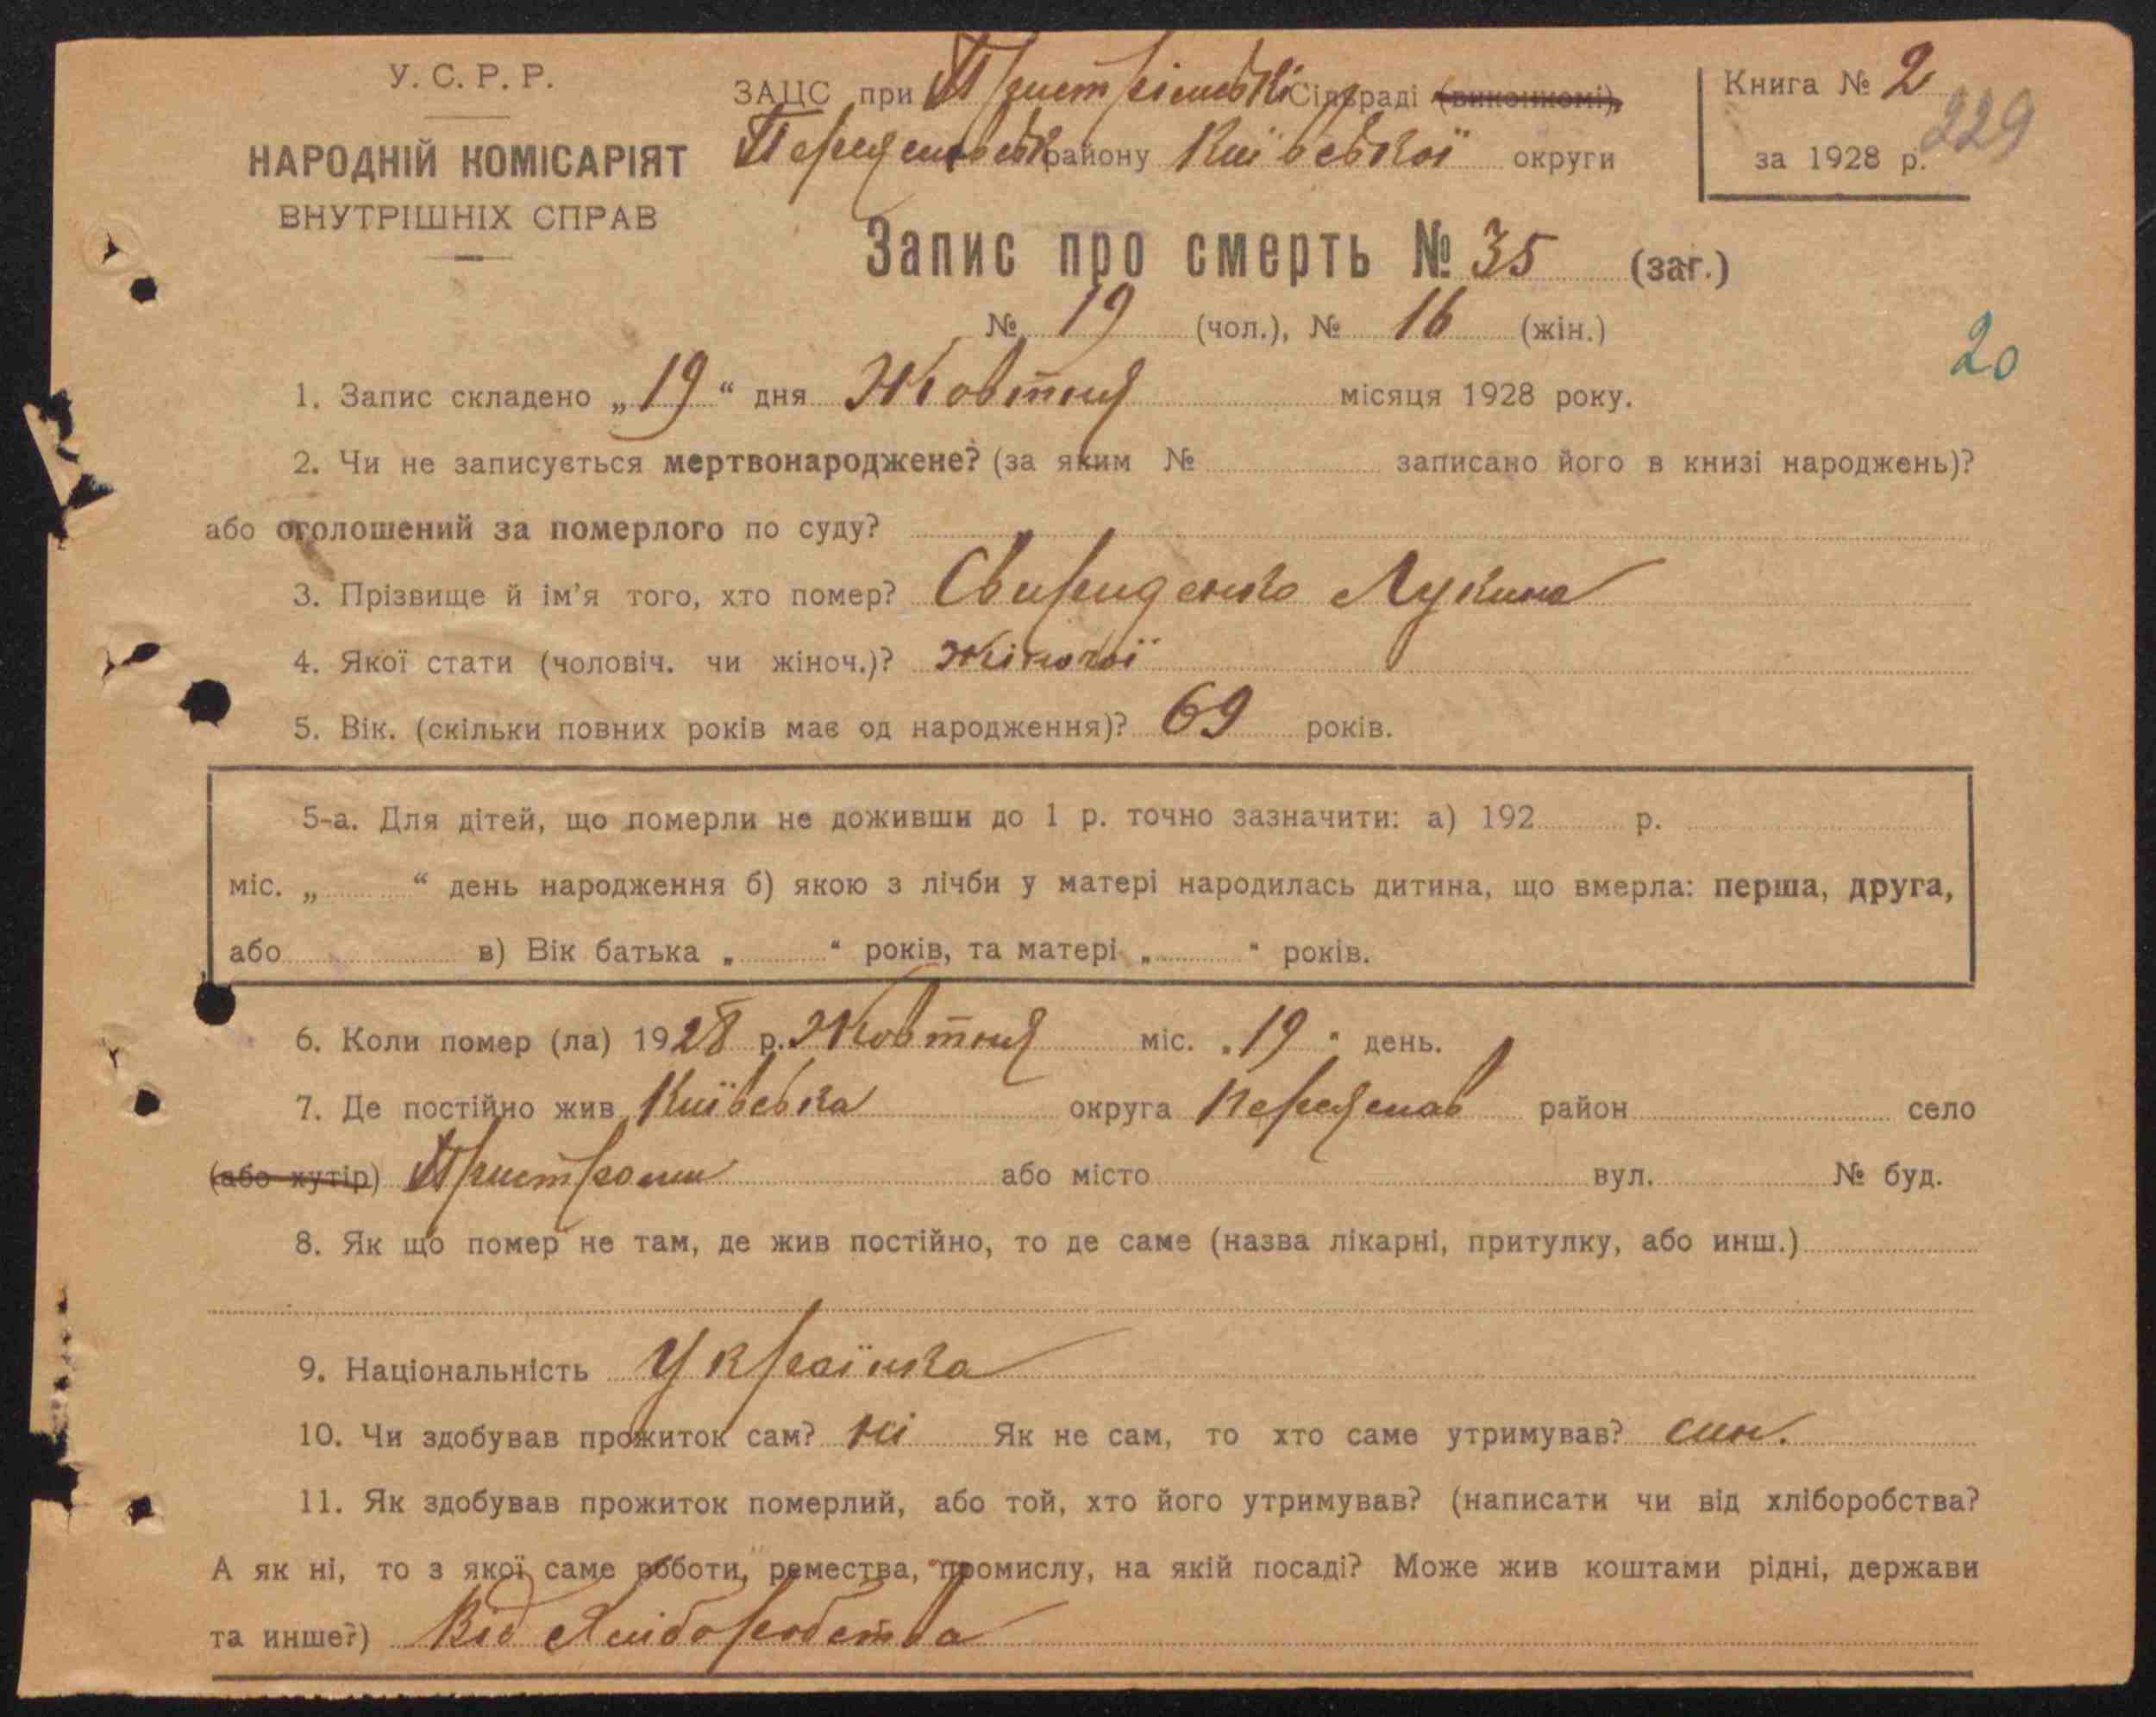 У. С. Р. Р.
НАРОДНІЙ КОМІСАРІЯТ
ВНУТРІШНІХ СПРАВ
ЗАЦС при Пристромській Сільраді (виконкомі),
Переяславськ району Київської округи
Книга № 2
229
за 1928 р.
Запис про смерть № 35 (заг.)
№ 19 (чол.), № 16 (жін.)
20
1. Запис складено „19“ дня Жовтня місяця 1928 року.
2. Чи не записується мертвонароджене? (за яким № записано його в книзі народжень)?
або оголошений за померлого по суду?
3. Прізвище й ім’я того, хто помер? Свириденко Лукина
4. Якої стати (чоловіч. чи жіноч.)? жіночої
5. Вік. (скільки повних років має од народження)? 69 років.
5-а. Для дітей, що померли не доживши до 1 р. точно зазначити: а) 192 р.
міс. „ “ день народження б) якою з лічби у матері народилась дитина, що вмерла: перша, друга,
або в) Вік батька „ “ років, та матері „ “ років.
6. Коли помер (ла) 1928 р. Жовтня міс. „19“ день.
7. Де постійно жив Київська округа Переяслав район село
(або хутір) Пристроми або місто вул. № буд.
8. Як що помер не там, де жив постійно, то де саме (назва лікарні, притулку, або инш.)
9. Національність Українка
10. Чи здобував прожиток сам? ні Як не сам, то хто саме утримував? син.
11. Як здобував прожиток померлий, або той, хто його утримував? (написати чи від хліборобства?
А як ні, то з якої саме роботи, ремества, промислу, на якій посаді? Може жив коштами рідні, держави
та инше?) Від Хліборобства